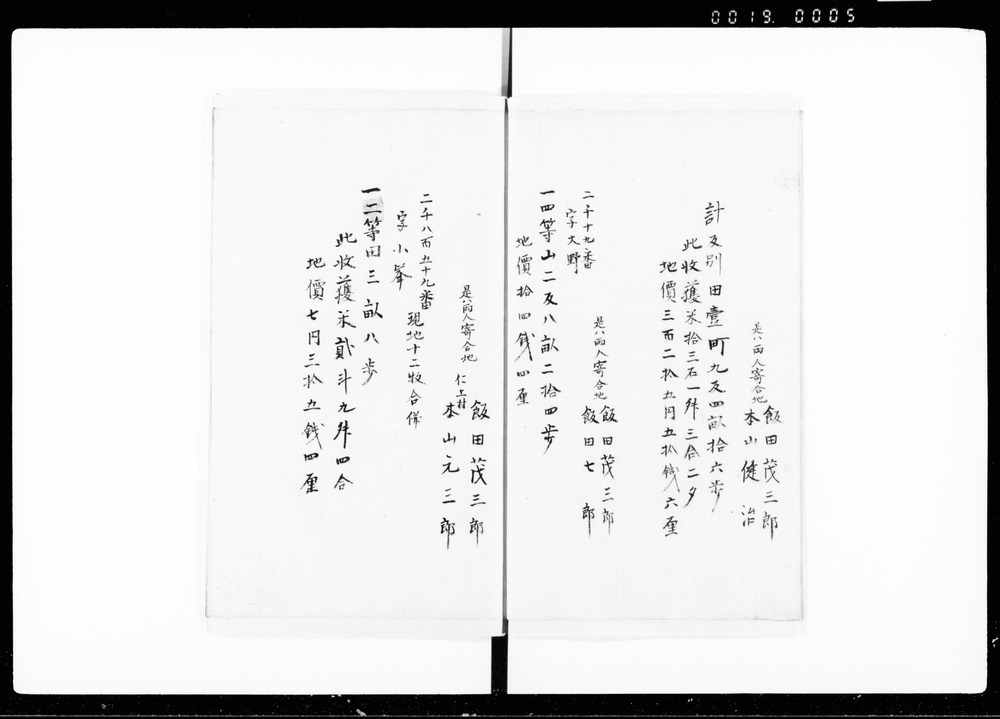 0019. 0005
是ハ両人寄合地
飯田茂三郎
本山健治
計反別田壹町九反四畝拾六歩
此收穫米拾三石一舛三合二夕
地價三百二拾五円五拾錢六厘
是ハ両人寄合地
飯田茂三郎
飯田七郎
二千十九番
字大野
一四等山二反八畝二拾四歩
地價拾四錢四厘
是ハ両人寄合地
飯田茂三郎
仁上村
本山元三郎
二千八百五十九番
現地十二牧合併
字小峯
一二等田三畝八歩
此收穫米貳斗九舛四合
地價七円三拾五錢四厘